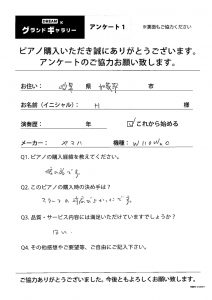 グランドギャラリー × アンケート1 ※裏面もご協力ください
ピアノ購入いただき誠にありがとうございます。
アンケートのご協力お願い致します。
お住い： 県 市
お名前（イニシャル）： H 様
演奏歴： 年 ☑これから始める
メーカー：ヤマハ 機種：
Q1. ピアノの購入経緯を教えてください。
Q2. このピアノの購入時の決め手は？
Q3. 品質・サービス内容には満足いただけていますでしょうか？
はい
Q4. その他感想やご要望等、ご自由にご記入下さい。
ご協力ありがとうございました。今後ともよろしくお願い致します。